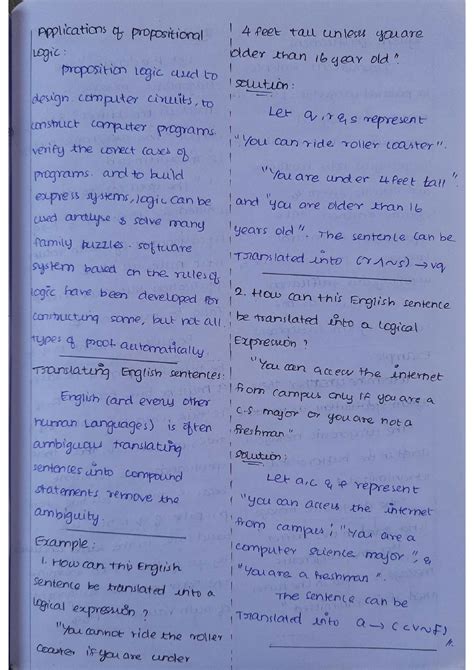 Applications of propositional
logic:
proposition logic used to
design computer circuits, to
construct computer programs
verify the correct cases of
programs. and to build
express systems, logic can be
used analyse & solve many
family puzzles. software
system based on the rules of
logic have been developed for
constructing some, but not all
types of proof automatically
Translating English sentences:
English (and every other
human languages) is often
ambiguous translating
sentences into compound
statements remove the
ambiguity
Example:
1. How can this English
sentence be translated into a
logical expression?
"You cannot ride the roller
coaster if you are under
4 feet tall unless you are
older than 16 year old".
solution:
Let q, r & s represent
"You can ride roller coaster".
"You are under 4 feet tall"
and "you are older than 16
years old". The sentence can be
Translated into (r∧~s)→~q
2. How can this English sentence
be translated into a logical
Expression?
"You can access the internet
from campus only if you are a
c.s major or you are not a
freshman"
solution:
Let a, c & f represent
"you can access the internet
from campus; "You are a
computer science major", &
"You are a freshman".
The sentence can be
Translated into a→(c∨~f)